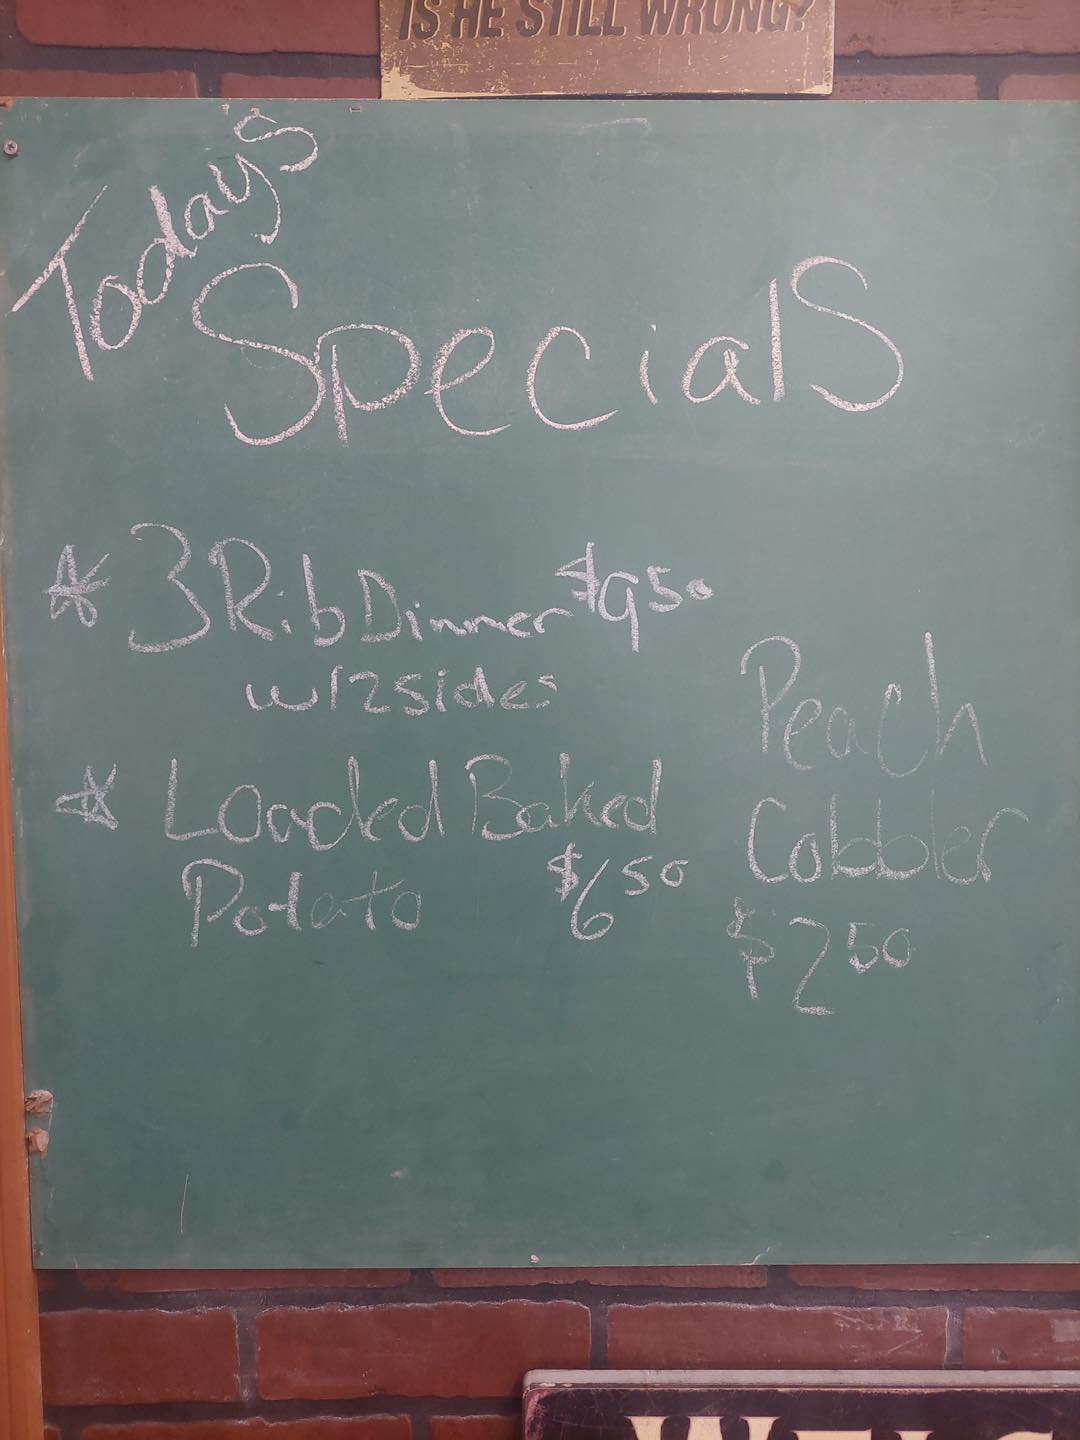 IS HE STILL WRONG?
Today's
Specials
* 3 Rib Dinner $9 50
w/2 sides
* Loaded Baked
Potato $6 50
Peach
Cobbler
$2 50